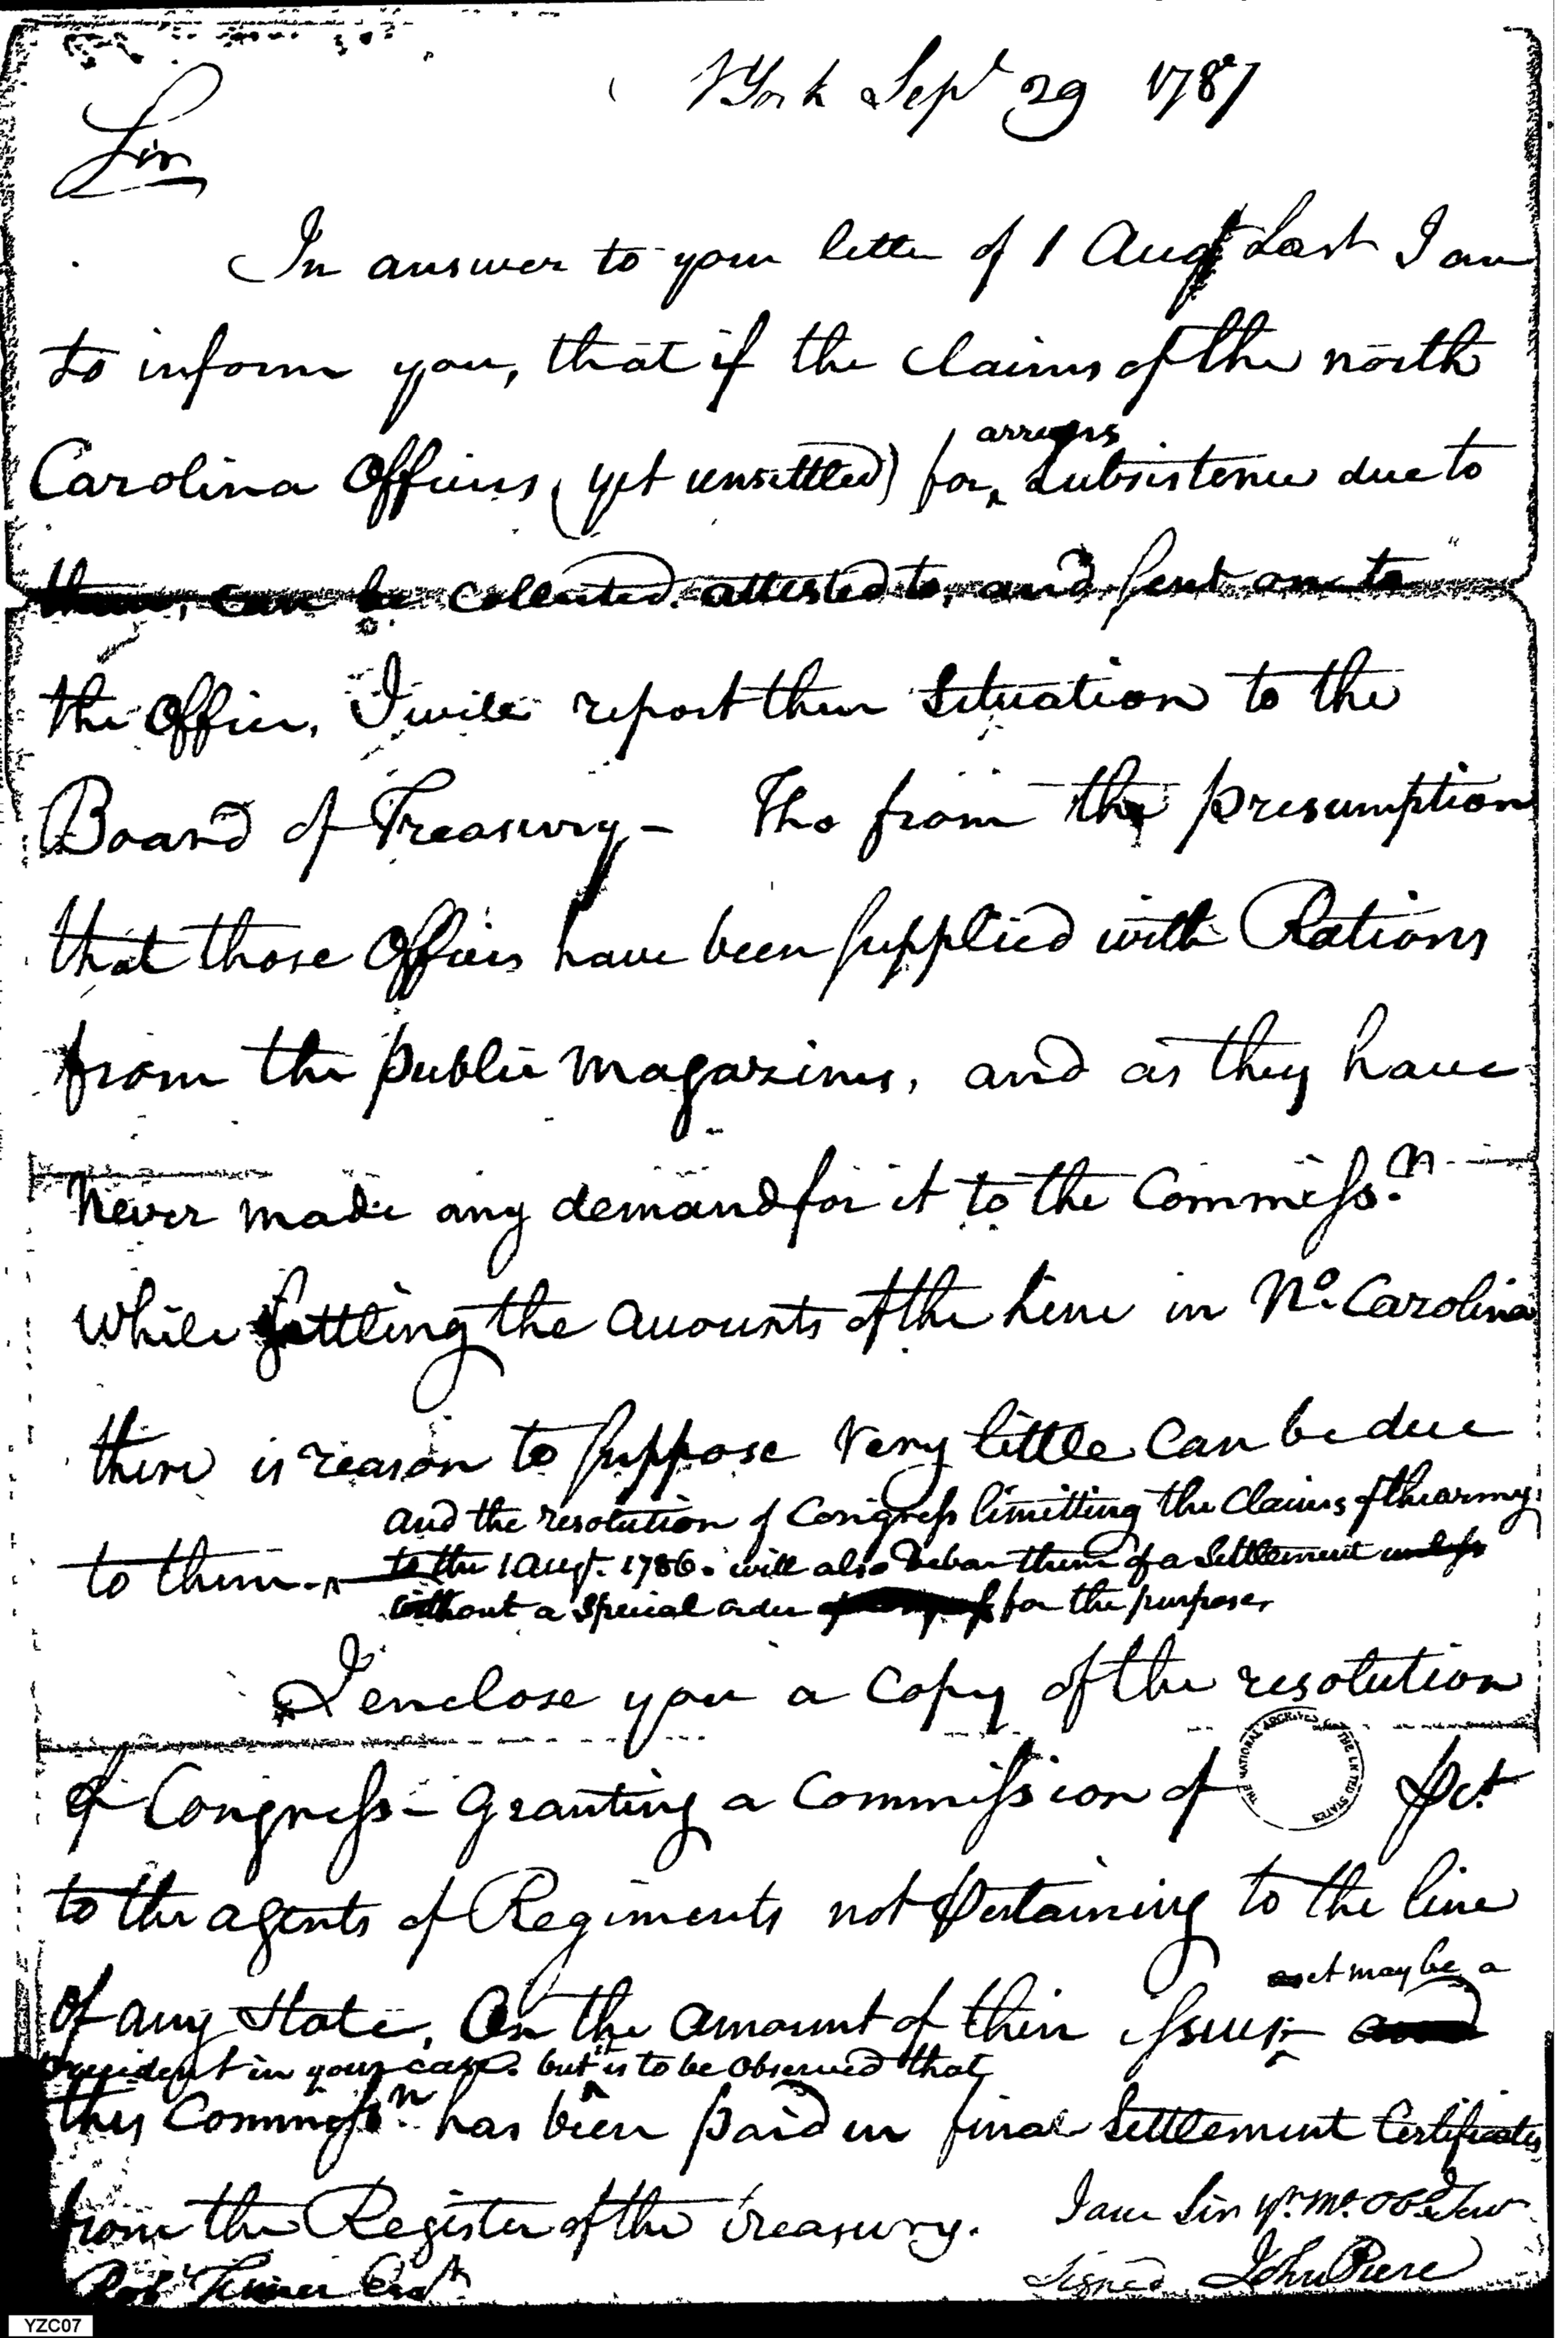 N York Sepr 29 1787
Sir
In answer to your letter of 1 Augt Last I am
to inform you, that if the Claims of the north
arrears
Carolina Officers (yet unsettled) for subsistence due to
them, can be collected attested to, and sent on to
the Office, I will report their Situation to the
Board of Treasury - Tho from the presumption
that those Officers have been supplied with Rations
from the public magazines, and as they have
Never made any demand for it to the Commissn
while settling the accounts of the Line in No. Carolina
there is reason to suppose very little can be due
and the resolution of Congress limitting the Claims of the army
to them. to the 1 Augt. 1786. will also debar them of a Settlement unless
without a special order for the purpose,
I enclose you a Copy of the resolution
of Congress - Granting a Commission of pct
THE NATIONAL ARCHIVES OF THE UNITED STATES
to the agents of Regiments not pertaining to the line
as it may be a
of any State, On the amount of their issues and
president in your case. but it is to be Observed that
this Commissn has been paid in final Settlement Certificates
from the Register of the treasury. I am Sir yr. mo. Obed Serv
Robt Fenner Esqr Signed John Pierce
YZC07